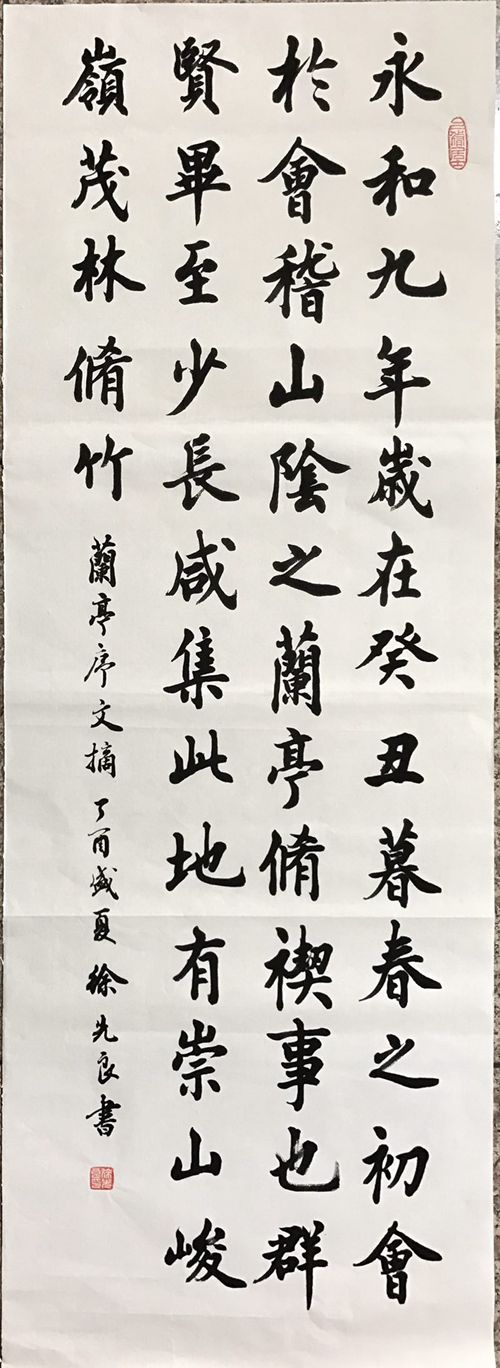 永和九年歲在癸丑暮春之初會
於會稽山陰之蘭亭脩禊事也群
賢畢至少長咸集此地有崇山峻
嶺茂林脩竹
蘭亭序文摘丁酉盛夏徐先良書